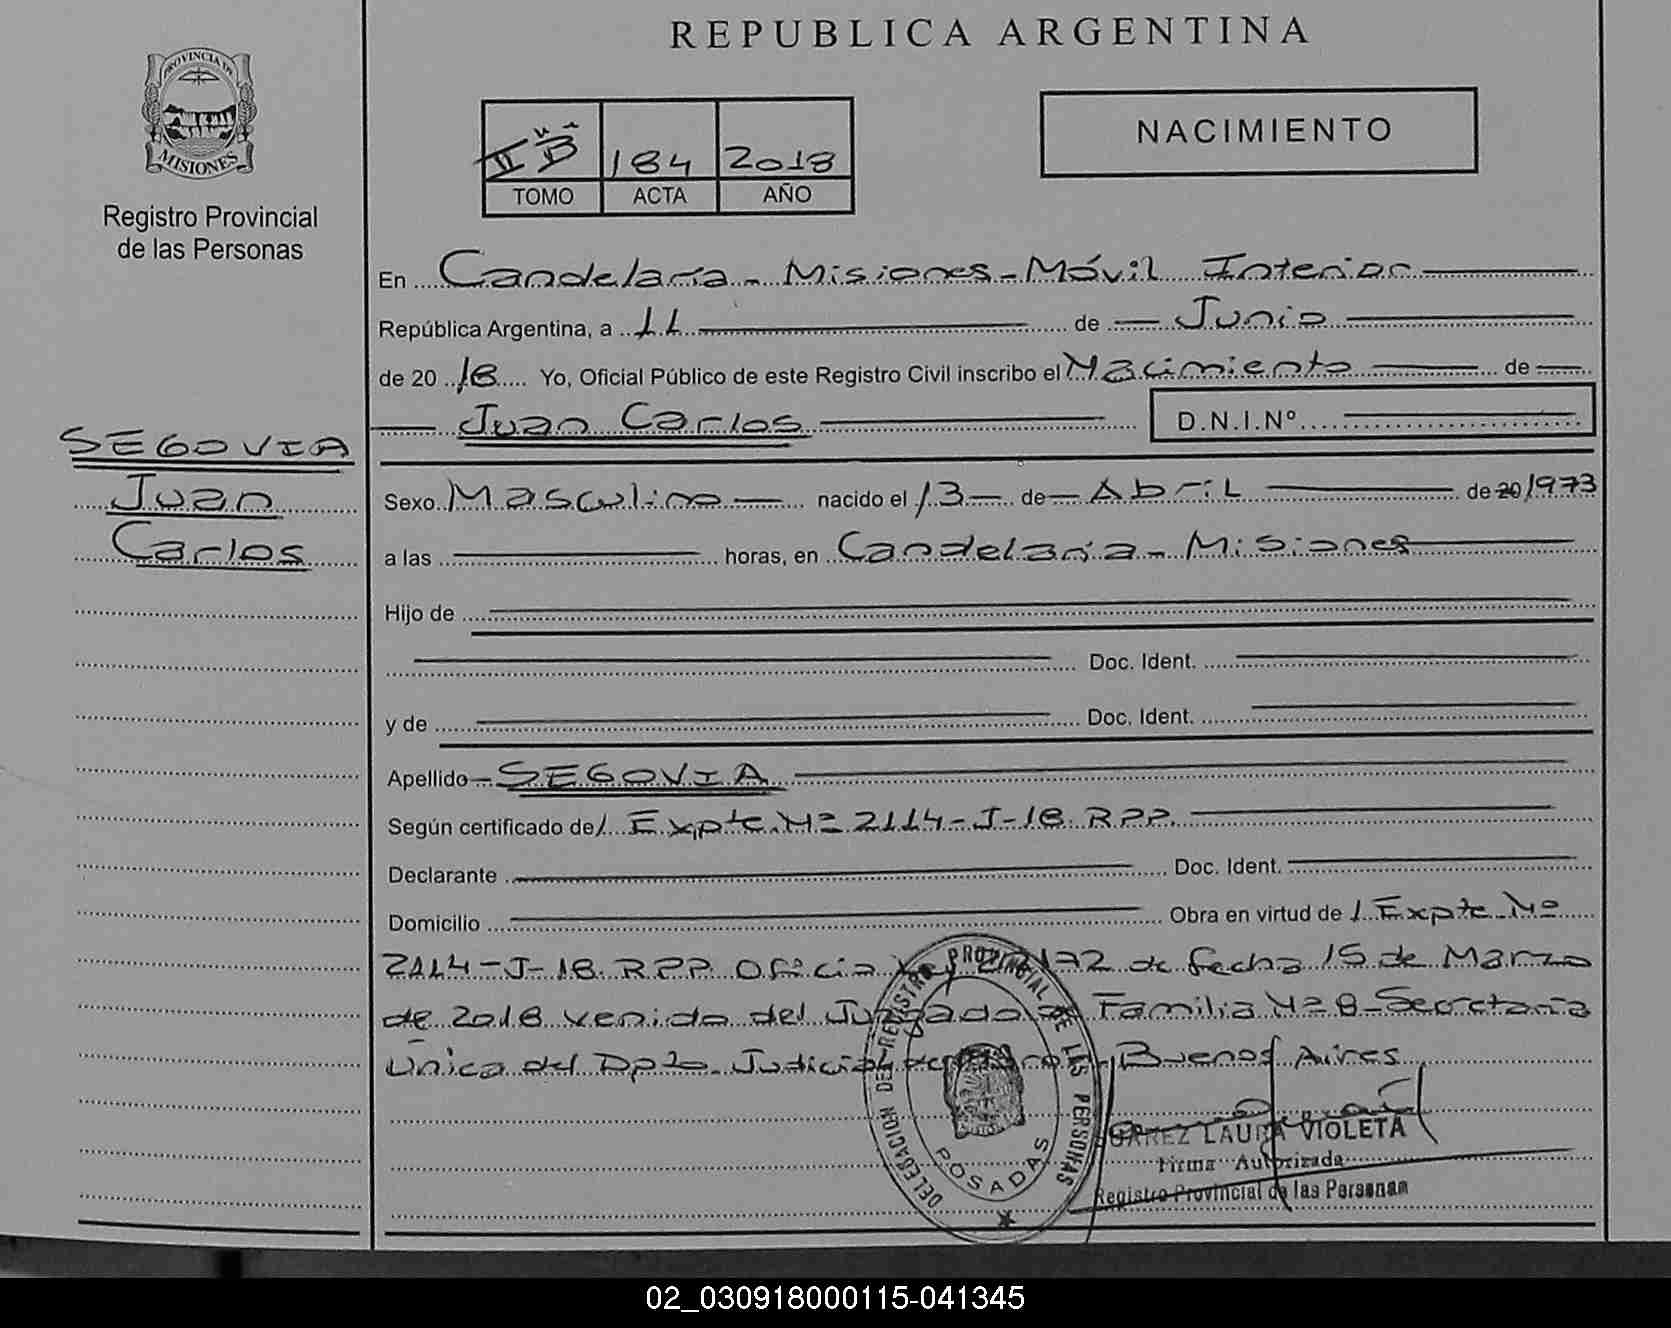 REPUBLICA ARGENTINA
PROVINCIA DE
MISIONES
Registro Provincial
de las Personas
II "B"
184
2018
TOMO
ACTA
AÑO
NACIMIENTO
En Candelaria - Misiones - Móvil Interior
República Argentina, a 11 de Junio
de 2018 Yo, Oficial Público de este Registro Civil inscribo el Nacimiento de
Juan Carlos D.N.I.Nº
SEGOVIA
Juan
Carlos
Sexo Masculino nacido el 13 de Abril de 20 1973
a las horas, en Candelaria - Misiones
Hijo de
Doc. Ident.
y de Doc. Ident.
Apellido SEGOVIA
Según certificado de/ Expte. Nº 2114-J-18 RPP.
Declarante Doc. Ident.
Domicilio Obra en virtud de / Expte Nº
2114-J-18 RPP. Oficio Ley 22172 de fecha 15 de Marzo
de 2018 venido del Juzgado de Familia Nº 8-Secretaria
Única del Dpto. Judicial de Buenos Aires
DELEGACION DEL REGISTRO PROVINCIAL DE LAS PERSONAS
POSADAS
LAURA VIOLETA
Firma Autorizada
Registro Provincial de las Personas
02_030918000115-041345